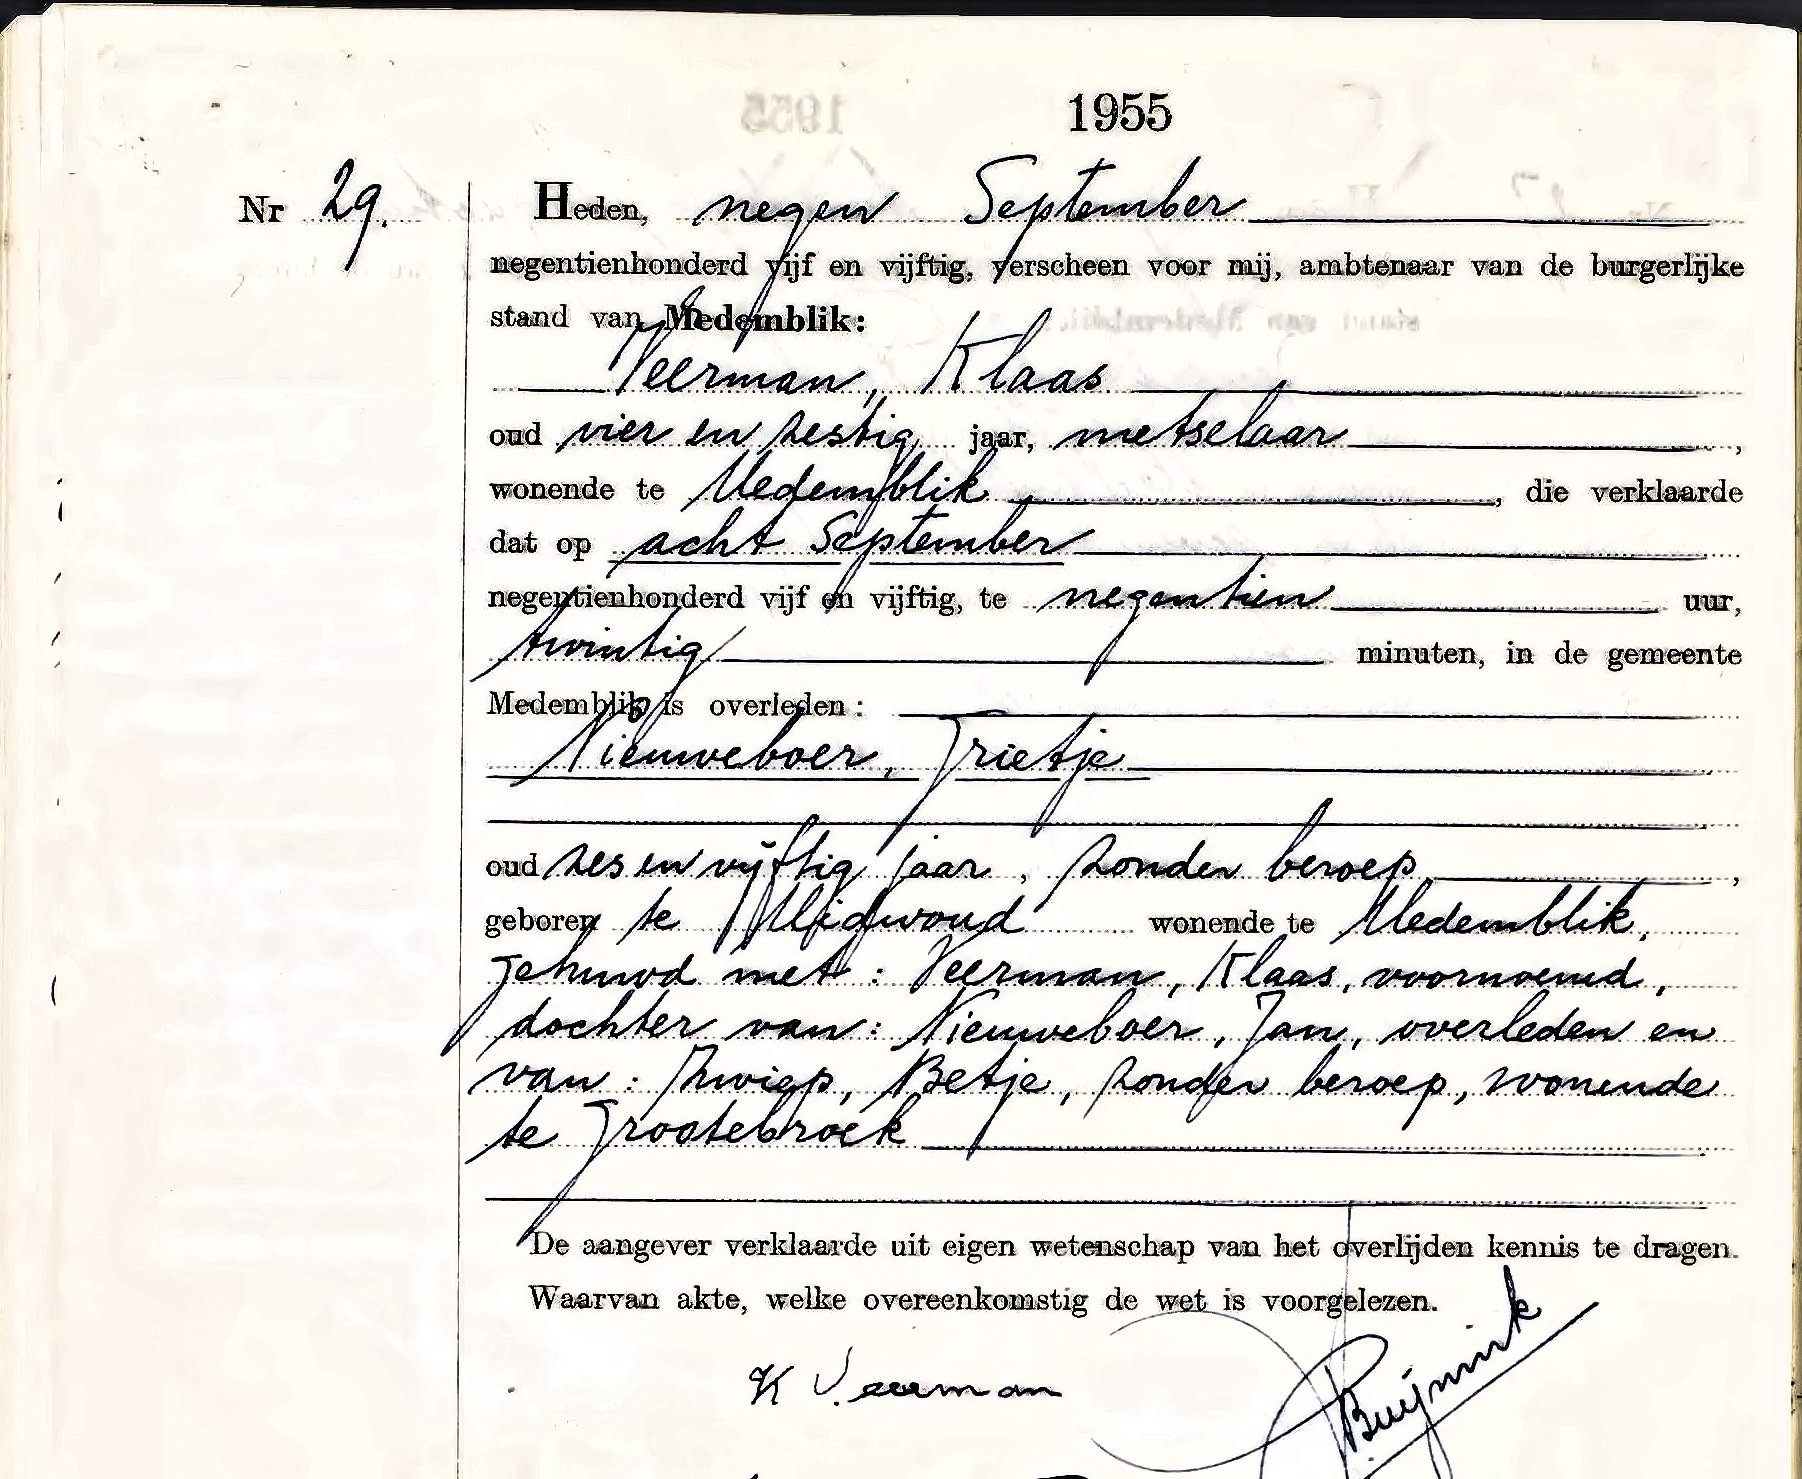 1955
Nr 29. Heden, negen September
negentienhonderd vijf en vijftig, verscheen voor mij, ambtenaar van de burgerlijke
stand van Medemblik:
Veerman, Klaas
oud vier en zestig jaar, metselaar,
wonende te Medemblik, die verklaarde
dat op acht September
negentienhonderd vijf en vijftig, te negentien uur,
twintig minuten, in de gemeente
Medemblik is overleden:
Nieuweboer, Grietje
oud zes en vijftig jaar, zonder beroep,
geboren te Midwoud wonende te Medemblik,
gehuwd met: Veerman, Klaas, voornoemd,
dochter van: Nieuweboer, Jan, overleden en
van: Zwiep, Betje, zonder beroep, wonende
te Grootebroek
De aangever verklaarde uit eigen wetenschap van het overlijden kennis te dragen.
Waarvan akte, welke overeenkomstig de wet is voorgelezen.
K Veerman
Buijmink